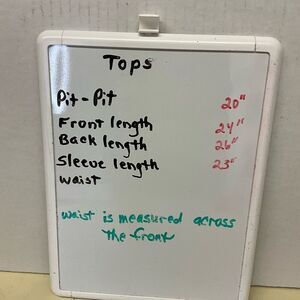 Tops
Pit-Pit 20"
Front length 24"
Back length 26"
Sleeve length 23"
waist
waist is measured across
the front